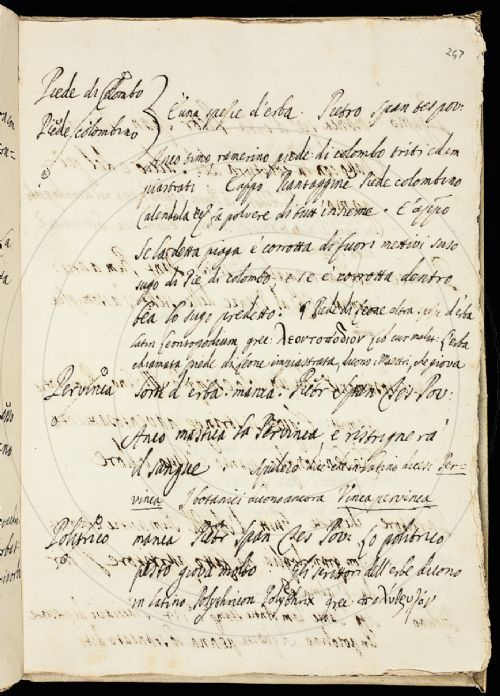 297
Piede di Colombo
Piede colombino
È una spesie d'erba. Pietro Span tes pov:
Anco timo, ramerino piede di colombo triti ed in
quatrati, Cappo Piantaggine Piede colombino
Calendula fa polvere di tutti insieme. E appo
Se la detta piaga è corrotta di fuori mettivi suso
sugo di Piè di colombo, se è corrotta dentro
bea lo sugo predetto. ¶ Piede di leone altra spe. d'erba
latin Leontopodium grec: λεοντοπόδιον L'erba
chiamata piede di leone impiastrata, dicono i Maestri, che giova
Pervinca
Sorta d'erba. manca. Pietr Span Tes Pov:
Anco mastica la Pervinca, e restrignerà
il sangue in latino dicesi Per-
vinca I botanici dicono ancora Vinca pervinca
Politrico
manca Pietr Span Tes Pov. Lo politrico
pesto giova molto Gli scrittori dell'erbe dicono
in latino Polytrichon Polythrix grec